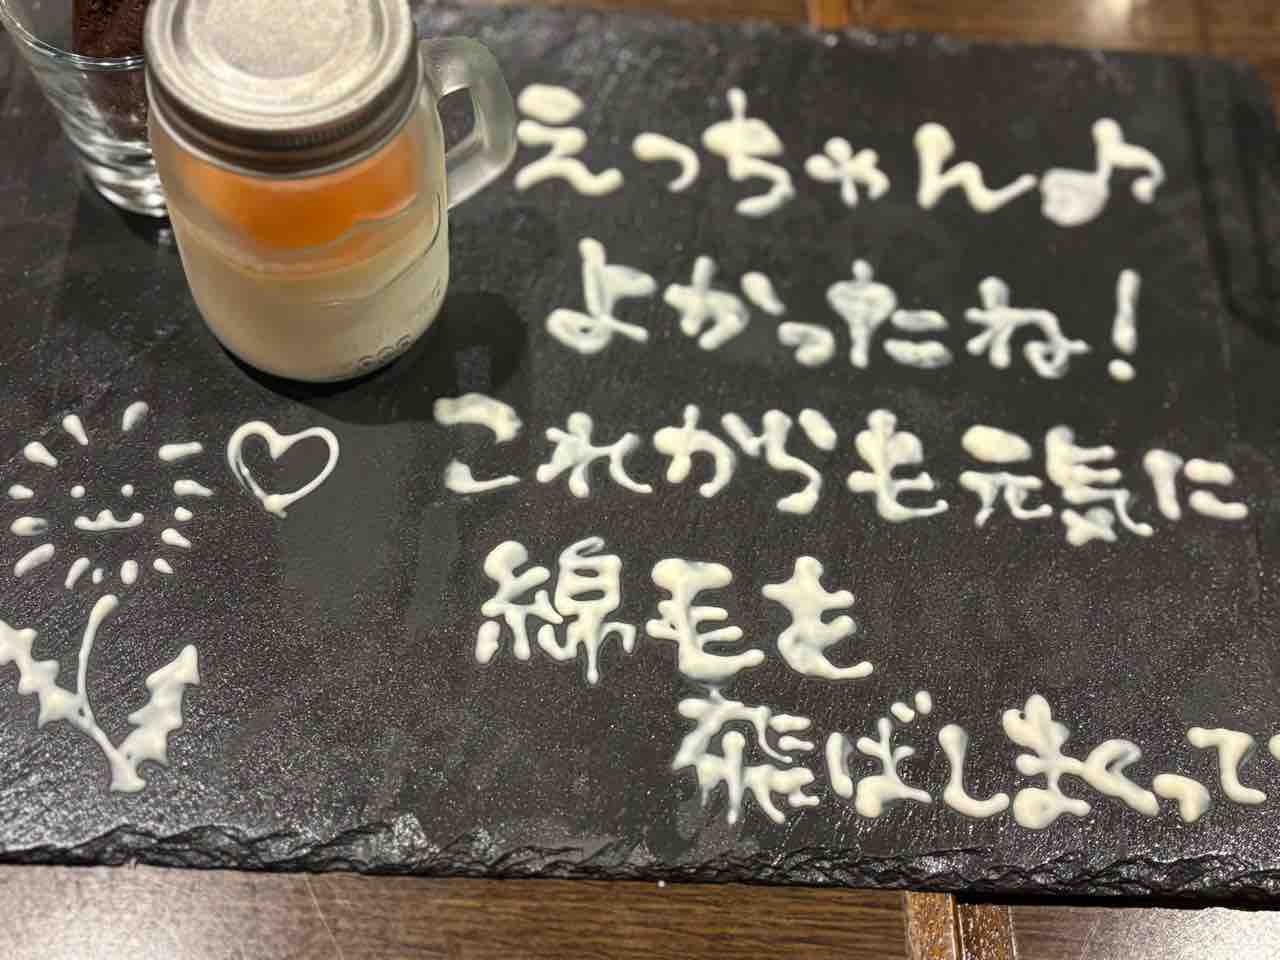 えっちゃん♪
よかったね!
これからも元気に
綿毛も
飛ばしまくって